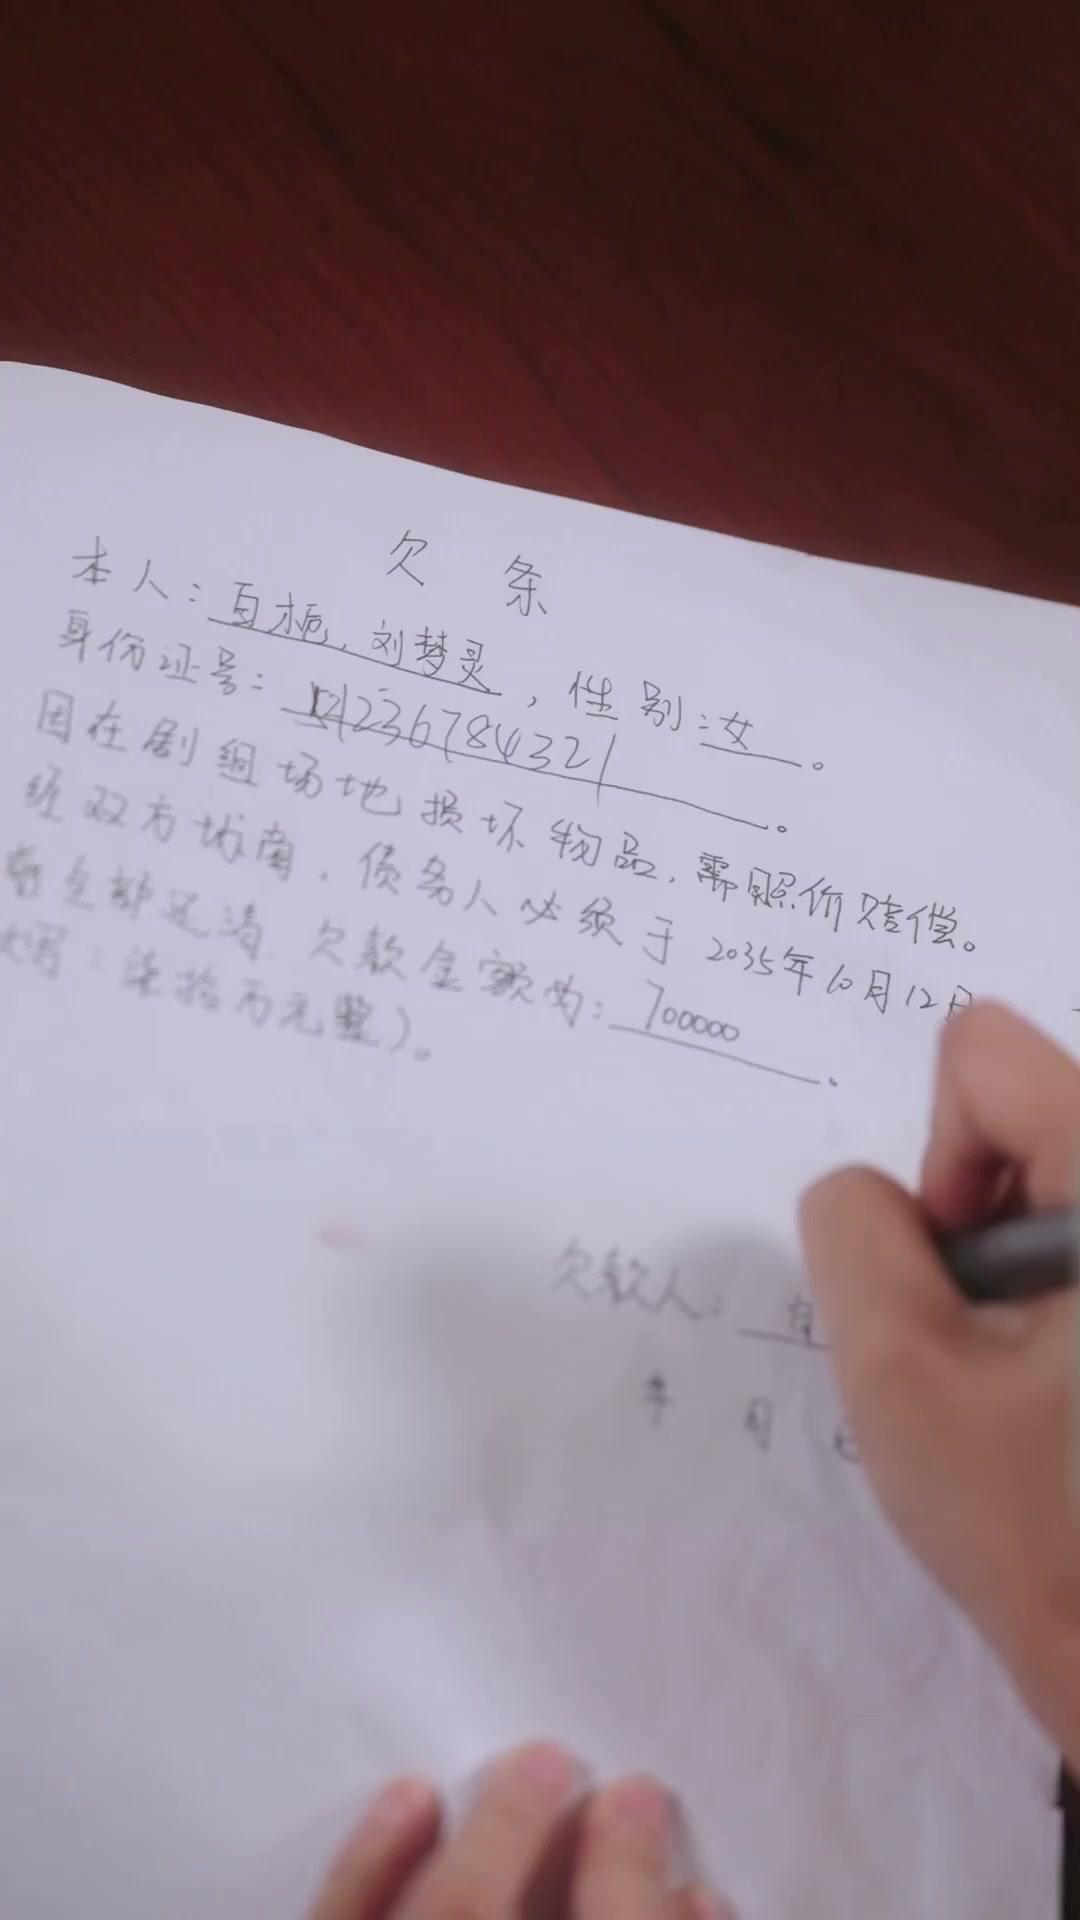 欠条
本人：百栀，刘梦灵，性别：女。
身份证号：1236784321。
因在剧组场地损坏物品，需照价赔偿。
经双方协商，债务人必须于2035年10月12日
前全部还清，欠款金额为：700000。
大写：柒拾万元整）。
欠款人：
年 月 日